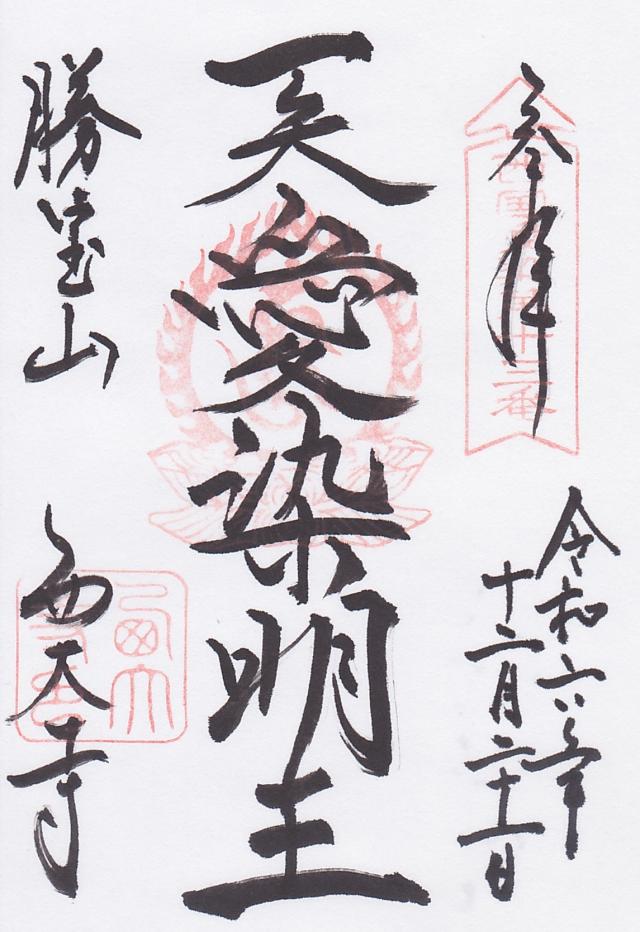 奉拝
十三番
令和六年
十二月二十一日
愛染明王
勝宝山
西大寺